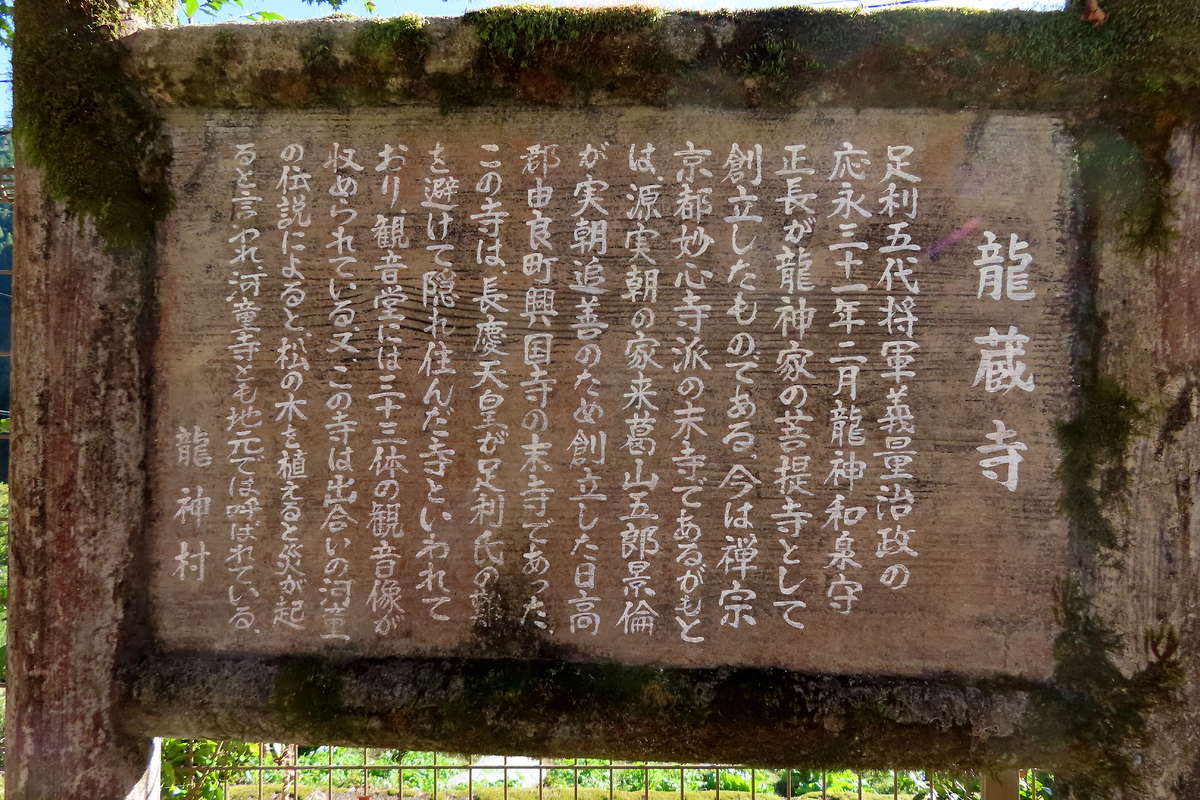 龍蔵寺
足利五代将軍義量治政の
応永三十一年二月龍神和泉守
正長が龍神家の菩提寺として
創立したものである、今は禅宗
京都妙心寺派の末寺であるがもと
は、源実朝の家来葛山五郎景倫
が実朝追善のため創立した日高
郡由良町興国寺の末寺であった、
この寺は、長慶天皇が足利氏の難
を避けて隠れ住んだ寺といわれて
おり観音堂には三十三体の観音像が
収められている、又この寺は出合いの河童
の伝説によると、松の木を植えると災が起
ると言われ、河童寺とも地元では呼ばれている、
龍神村